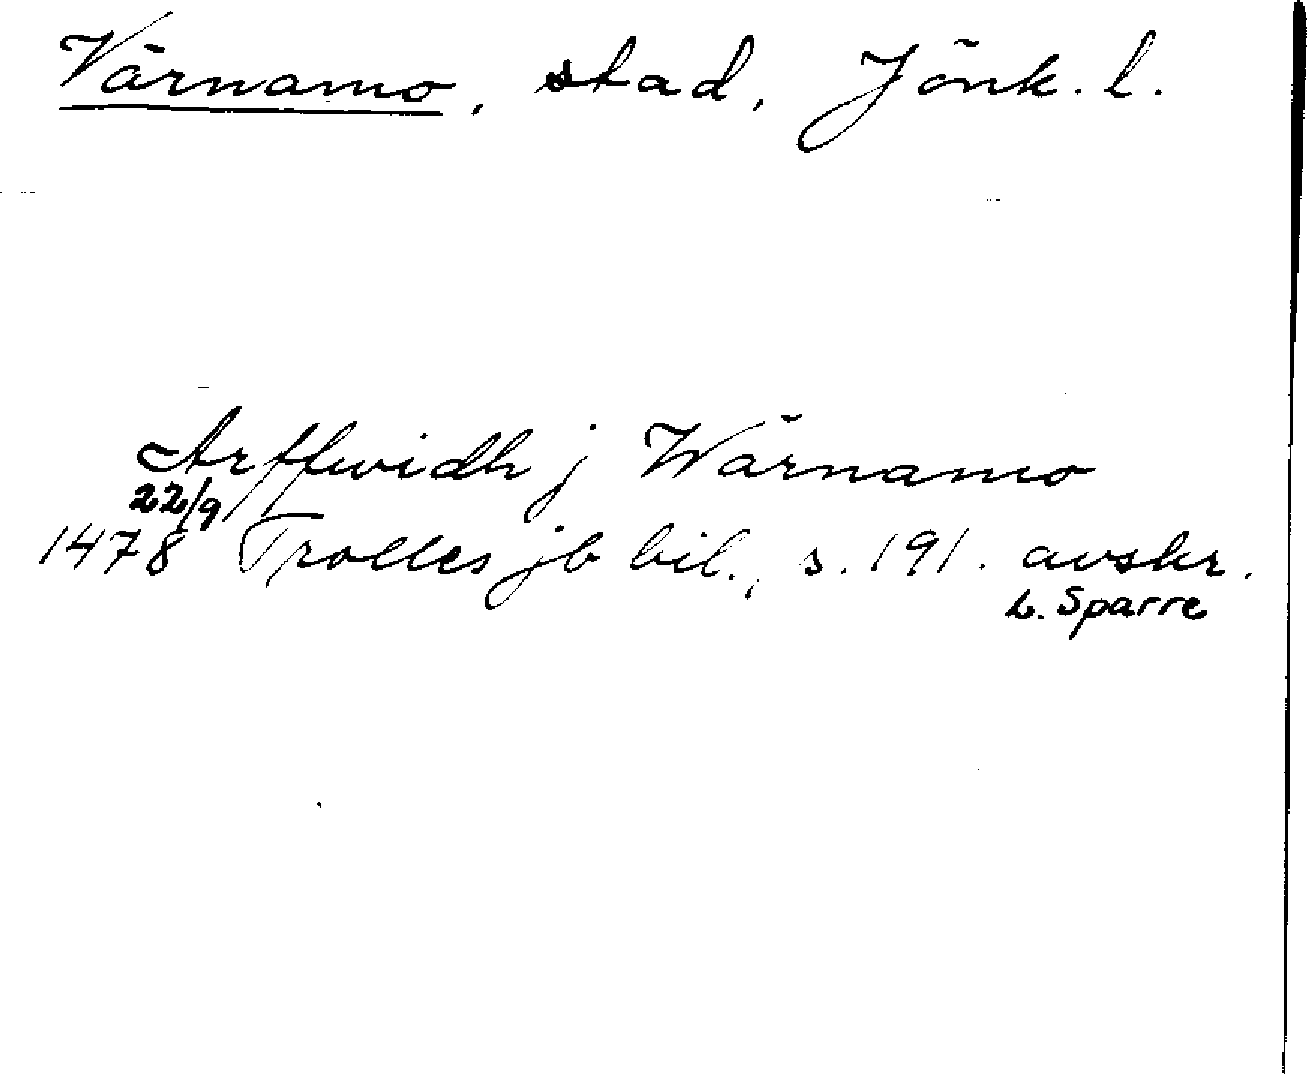 Värnamo, stad, Jönk. l.
Arffwidh j Wärnamo
22/9
1478 Trolles jb bil., s. 191. avskr.
L. Sparre